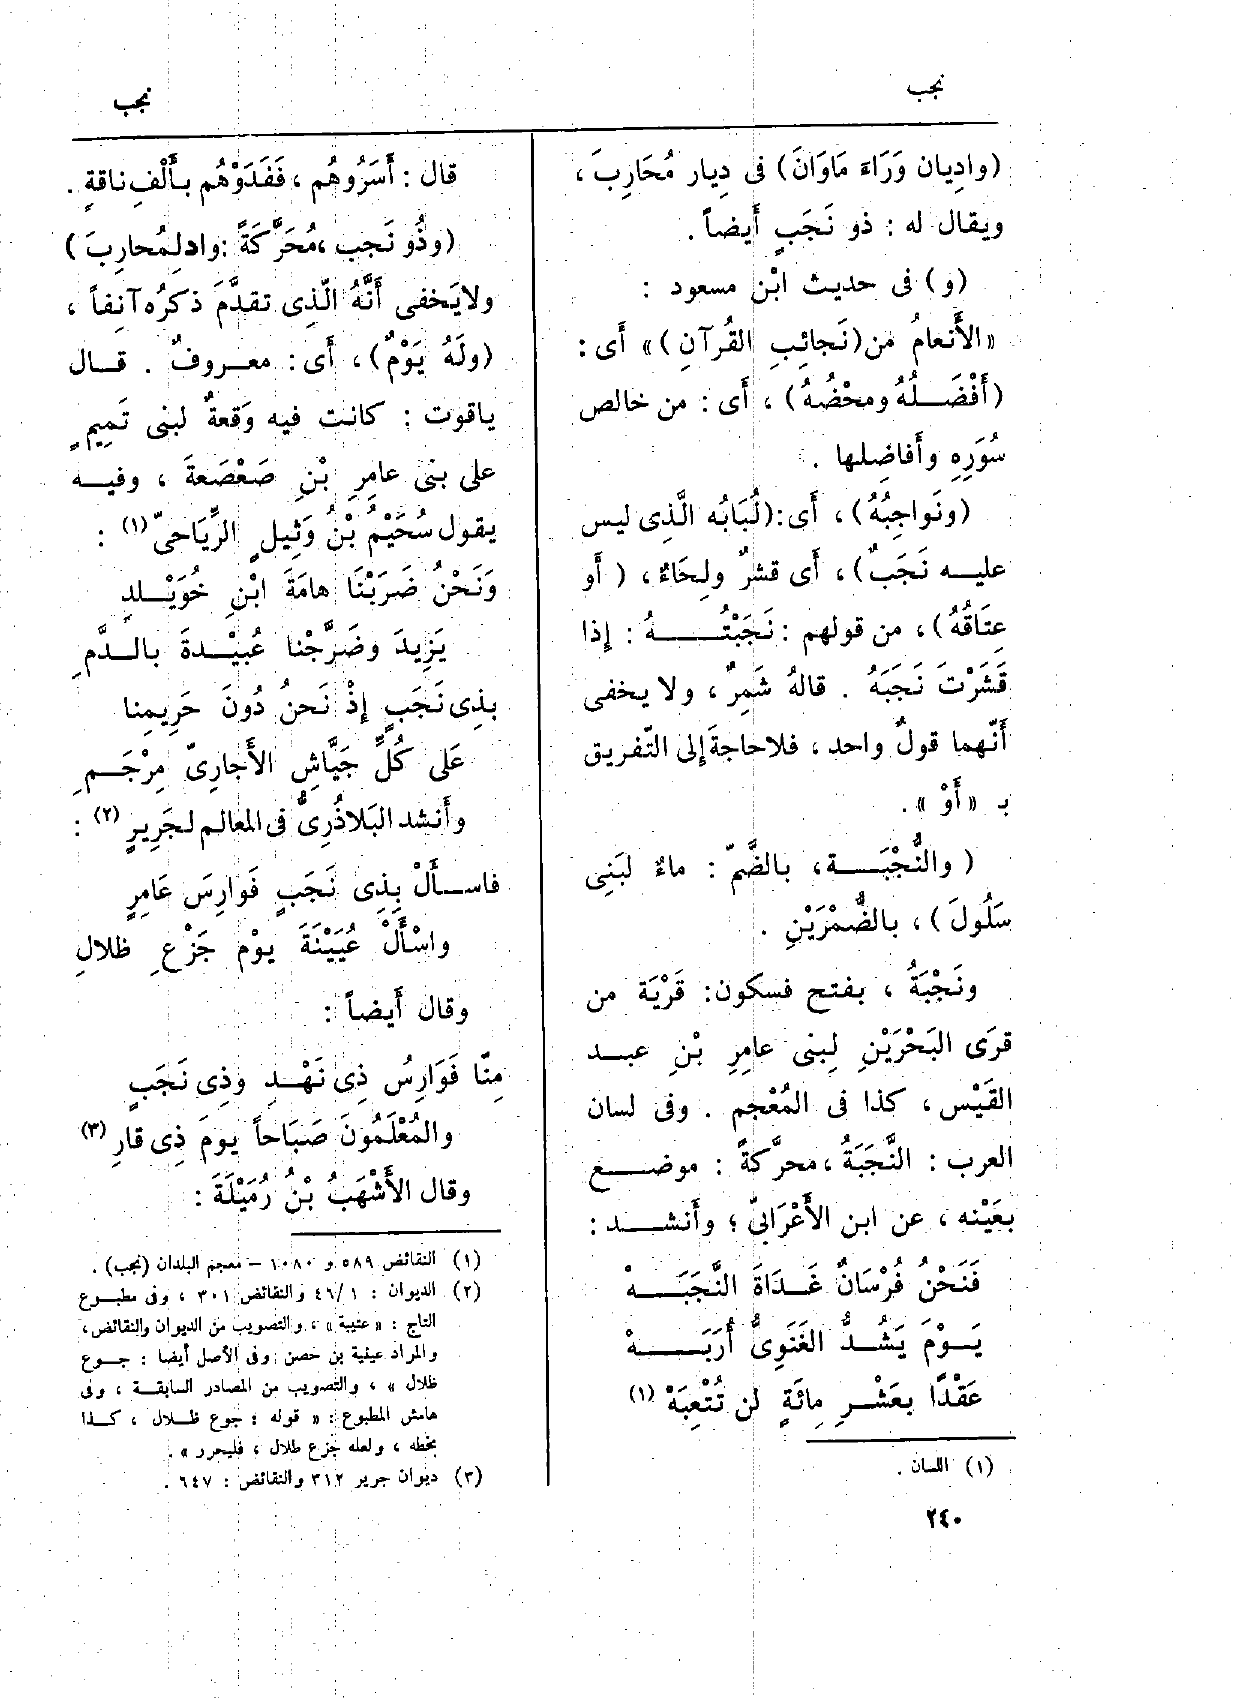 نجب
نجب
(واديان وَرَاءَ مَاوَانَ) فى دِيار مُحَارِبَ ،
ويقال له : ذو نَجَبٍ أَيضاً .
(و) فى حديث ابْنِ مسعود :
«الأَنعامُ من (نَجائِبِ القُرآنِ)» أَى :
(أَفْضَلُهُ ومحْضُهُ) ، أَى : من خالص
سُوَرِهِ وأَفاضِلها .
(ونَواجِبُهُ) ، أَى : (لُبَابُه الَّذِى ليس
عليه نَجَبٌ) ، أَى قشرٌ ولِحَاءٌ ، ( أَو
عِتَاقُهُ) ، من قولهم : نَجَبْتُهُ : إِذا
قَشَرْتَ نَجَبَهُ . قالهُ شَمِرٌ ، ولا يخفى
أَنّهما قولٌ واحد ، فلاحاجةَ إِلى التّفريق
بـ «أَوْ» .
( والنُّجْبَة ، بالضَّمّ : ماءٌ لبَنِى
سَلُولَ ) ، بالضُّمْرَيْنِ .
ونَجْبَةُ ، بفتح فسكون : قَرْيَة من
قرَى البَحْرَيْنِ لِبنى عامِرِ بْنِ عبد
القَيْس ، كذا فى المُعْجم . وفى لسان
العرب : النَّجَبَةُ ، محرَّكةً : موضع
بعَيْنه ، عن ابن الأَعْرَابىّ ؛ وأَنشد :
فَنَحْنُ فُرْسَانٌ غَدَاةَ النَّجَبَهْ
يَوْمَ يَشُدُّ الغَنَوِىُّ أُرَبَهْ
عَقْدًا بعَشْرِ مِائَةٍ لن تُتْعِبَهْ (١)
(١) اللسان .
٢٤٠
قال : أَسَرُوهُم ، فَفَدَوْهُم بأَلْفِ ناقةٍ .
(وذُو نَجب ، مُحَرَّكَةً : واد لمُحاربَ )
ولايَخفى أَنَّهُ الَّذِى تقدَّمَ ذكرُه آنفاً ،
(ولَهُ يَوْمٌ) ، أَى : معروفٌ . قال
ياقوت : كانت فيه وَقعةٌ لبنى تَمِيمٍ
على بنى عامِرِ بْنِ صَعْصَعةَ ، وفيه
يقول سُحَيْمُ بْنُ وَثِيلٍ الرِّيَاحىّ (١) :
وَنَحْنُ ضَرَبْنَا هامَةَ ابْنِ خُوَيْلدٍ
يَزِيدَ وضَرَّجْنا عُبيْدةَ بالدَّمِ
بذِى نَجَبٍ إِذْ نَحنُ دُونَ حَرِيمنا
عَلى كُلِّ جَيَّاشِ الأَجارِىّ مِرْجَمِ
وأَنشد البَلاذُرِىُّ فى المعالم لجَرِيرٍ (٢) :
فاسأَلْ بِذِى نَجَبٍ فَوارِسَ عَامِرٍ
واسْأَلْ عُيَيْنَةَ يوْم جَزْعِ ظلالِ
وقال أَيضاً :
مِنّا فَوَارِسُ ذِى نَهْدٍ وذِى نَجَبٍ
والمُعْلَمُونَ صَبَاحاً يومَ ذِى قارِ (٣)
وقال الأَشْهَبُ بْنُ رُمَيْلَةَ :
(١) النقائض ٥٨٩ و ١٠٨٠ – معجم البلدان (نجب) .
(٢) الديوان : ٤٦/١ والنقائض ٣٠١ ، وفى مطبوع
التاج : «عتيبة» ، والتصويب من الديوان والنقائض ،
والمراد عيينة بن حصن . وفى الأصل أيضا : جوع
ظلال » ، والتصويب من المصادر السابقة ، وفى
هامش المطبوع : « قوله : جوع ظلال ، كذا
بخطه ، ولعله جزع طلال ، فليحرر » .
(٣) ديوان جرير ٣١٢ والنقائض : ٦٤٧ .